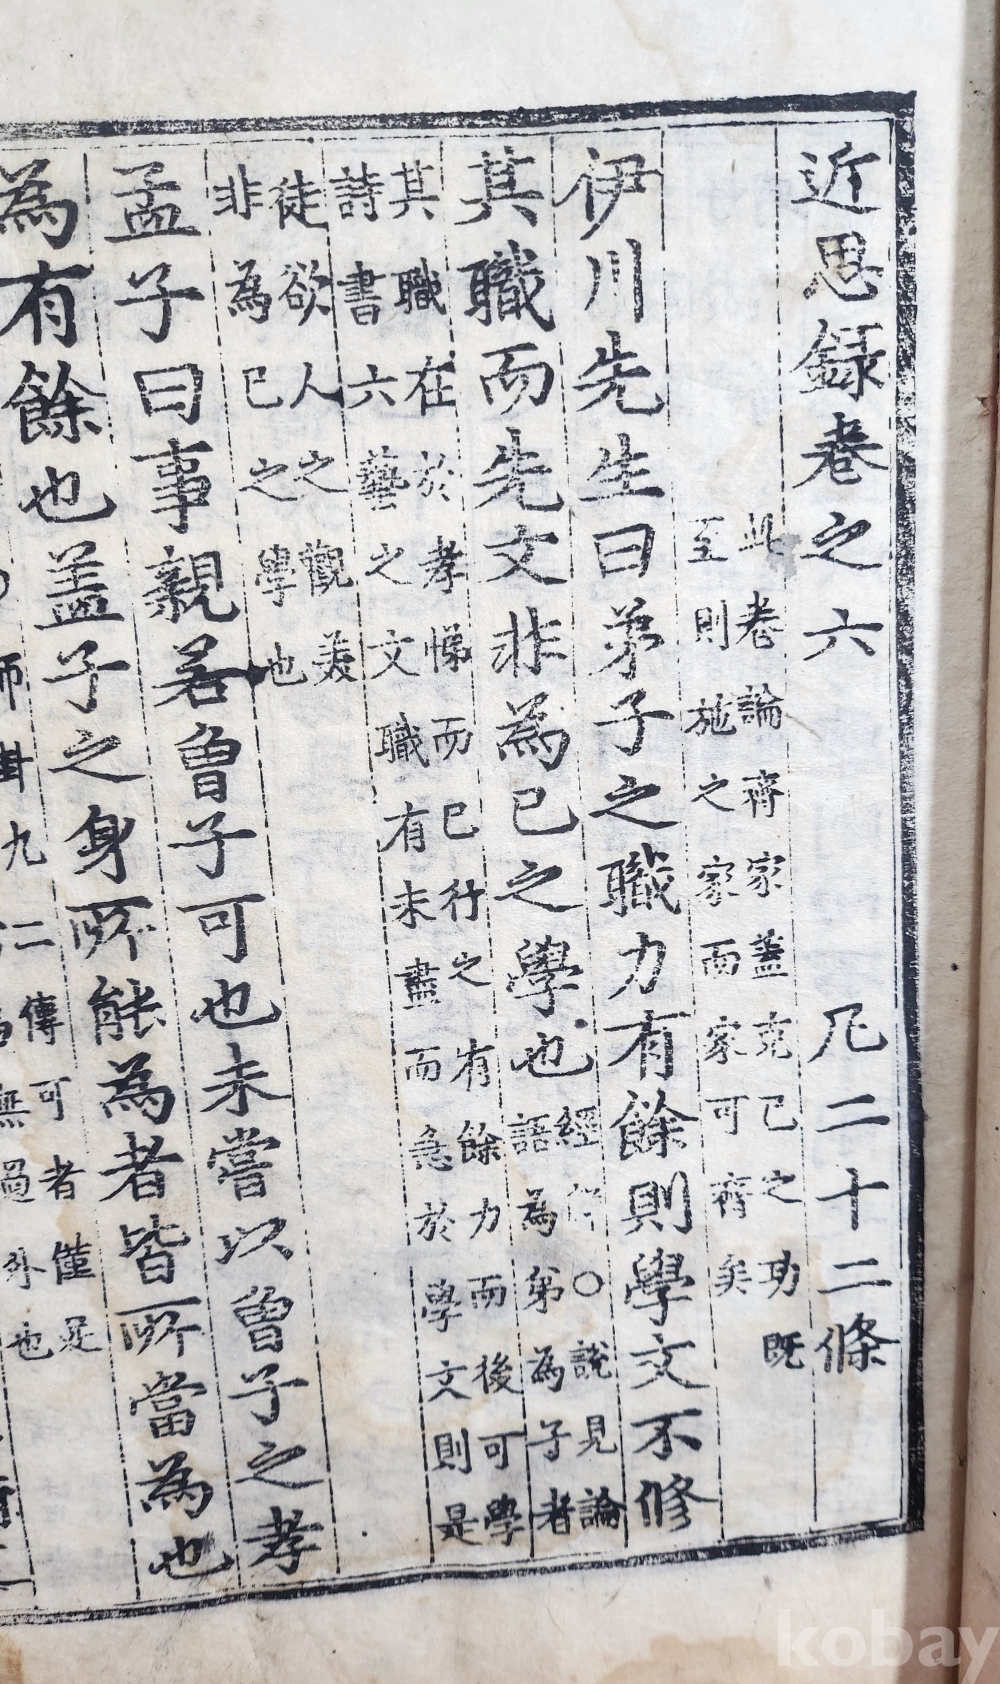 近思録卷之六 凡二十二條
此卷論齊家蓋克己之功既
至則施之家而家可齊矣
伊川先生曰弟子之職力有餘則學文不修
其職而先文非為己之學也
經解○說見論
語為弟為子者
其職在於孝悌而已行之有餘力而後可學
詩書六藝之文職有未盡而急於學文則是
徒欲人之觀美
非為己之學也
孟子曰事親若曾子可也未嘗以曾子之孝
為有餘也盖子之身所能為者皆所當為也
師 九二傳可者僅足
無過外也
kobay